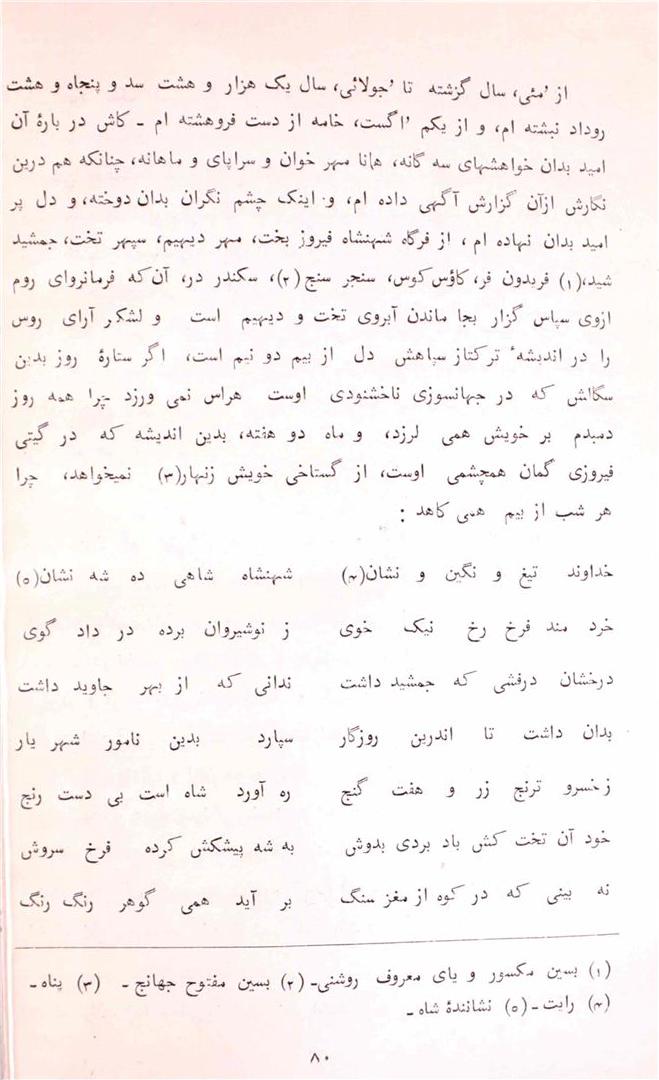 از 'مئی، سال گزشته تا 'جولائی، سال یک هزار و هشت سد و پنجاه و هشت
روداد نبشته ام، و از یکم 'اگست، خامه از دست فروهشته ام ـ کاش در بارۀ آن
امید بدان خواهشهای سه گانه، همانا مهر خوان و سراپای و ماهانه، چنانکه هم درین
نگارش ازآن گزارش آگهی داده ام، و اینک چشم نگران بدان دوخته، و دل پر
امید بدان نهاده ام، از فرگاه شهنشاه فیروز بخت، مهر دیهیم، سپهر تخت، جمشید
شید،(۱) فریدون فر، کاؤس کوس، سنجر سنج(۲)، سکندر در، آن که فرمانروای روم
ازوی سپاس گزار بجا ماندن آبروی تخت و دیهیم است و لشکر آرای روس
را در اندیشهٔ ترکتاز سپاهش دل از بیم دو نیم است، اگر ستارۀ روز بدین
سگالش که در جهانسوزی ناخشنودی اوست هراس نمی ورزد چرا همه روز
دمبدم بر خویش همی لرزد، و ماه دو هفته، بدین اندیشه که در گیتی
فیروزی گمان همچشمی اوست، از گستاخی خویش زنهار(۳) نمیخواهد، چرا
هر شب از بیم همی کاهد :
خداوند تیغ و نگین و نشان(۴) شهنشاه شاهی ده شه نشان(۵)
خرد مند فرخ رخ نیک خوی ز نوشیروان برده در داد گوی
درخشان درفشی که جمشید داشت ندانی که از بهر جاوید داشت
بدان داشت تا اندرین روزگار سپارد بدین نامور شهر یار
ز خسرو ترنج زر و هفت گنج ره آورد شاه است بی دست رنج
خود آن تخت کش باد بردی بدوش به شه پیشکش کرده فرخ سروش
نه بینی که در کوه از مغز سنگ بر آید همی گوهر رنگ رنگ
(۱) بسین مکسور و یای معروف روشنی۔ (۲) بسین مفتوح جهانج ۔ (۳) پناه ۔
(۴) رایت ۔ (۵) نشانندۀ شاه ۔
۸۰